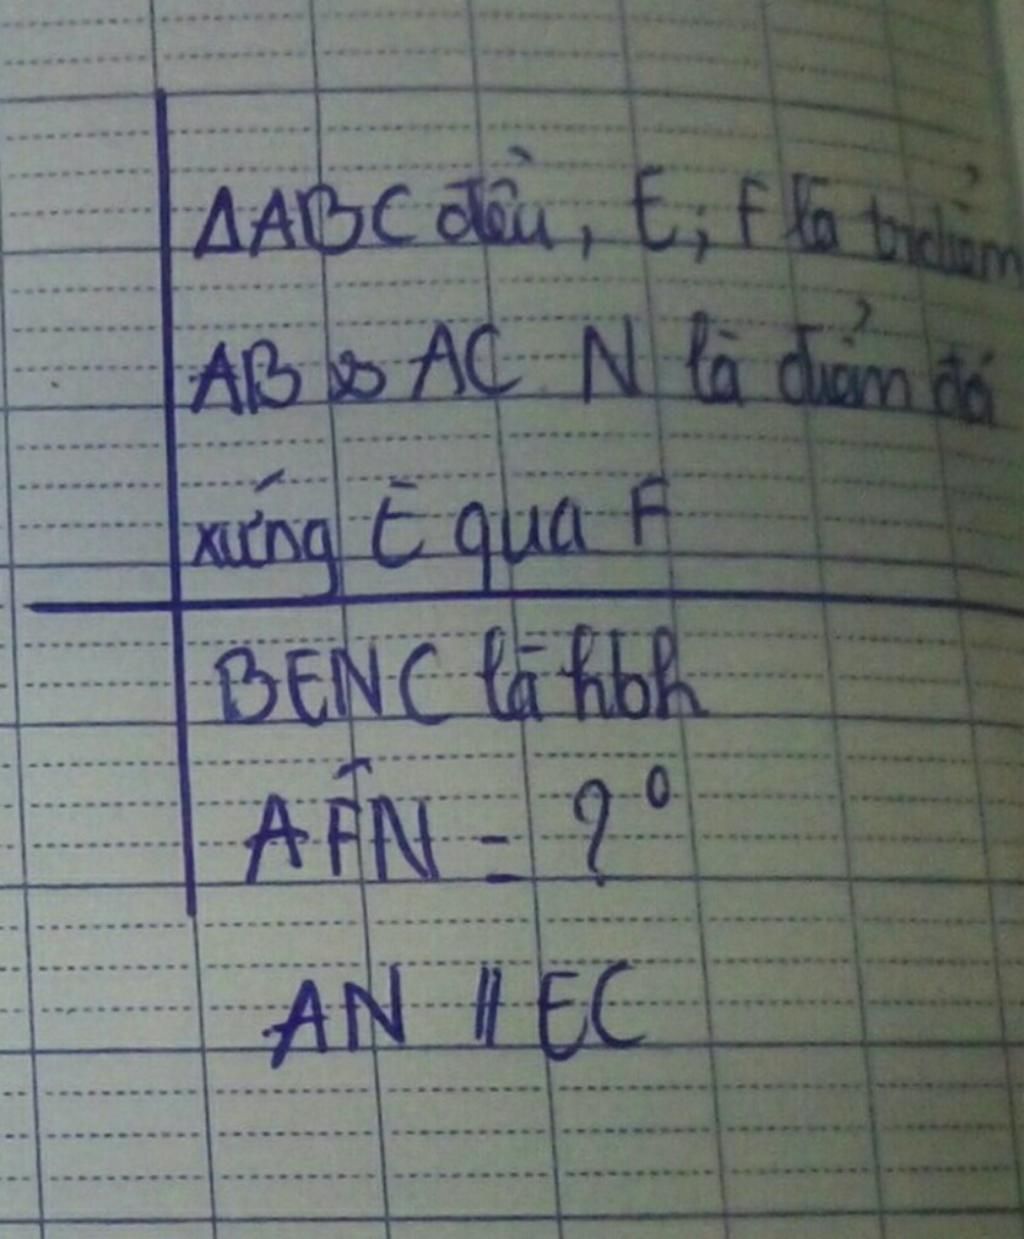 ΔABC đều, E; F là tr điểm
AB và AC N là điểm đối
xứng E qua F
BENC là hbh
AF̂N = ?°
AN // EC